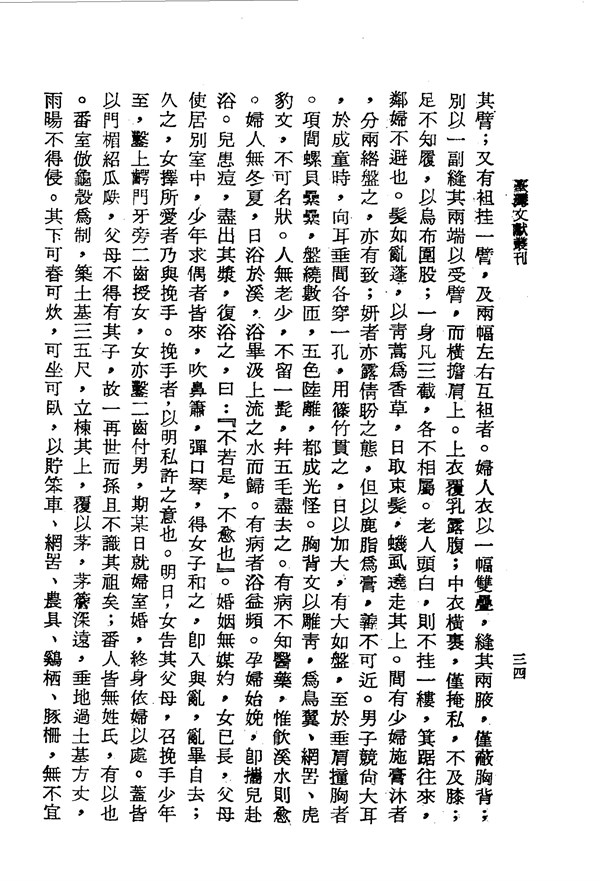 臺灣文獻叢刊
三四
其臂；又有袒挂一臂，及兩幅左右互袒者。婦人衣以一幅雙疊，縫其兩腋，僅蔽胸背；
別以一副縫其兩端以受臂，而橫擔肩上。上衣覆乳露腹；中衣橫裹，僅掩私，不及膝；
足不知履，以烏布圍股；一身凡三截，各不相屬。老人頭白，則不挂一縷，箕踞往來，
鄰婦不避也。髮如亂蓬，以青蒿為香草，日取束髮，蟣虱遶走其上。間有少婦施膏沐者
，分兩綹盤之，亦有致；妍者亦露倩盼之態，但以鹿脂為膏，羶不可近。男子競尚大耳
，於成童時，向耳垂間各穿一孔，用篠竹貫之，日以加大，有大如盤，至於垂肩撞胸者
。項間螺貝纍纍，盤繞數匝，五色陸離，都成光怪。胸背文以雕青，為鳥翼、網罟、虎
豹文，不可名狀。人無老少，不留一髭，幷五毛盡去之。有病不知醫藥，惟飲溪水則愈
。婦人無冬夏，日浴於溪，浴畢汲上流之水而歸。有病者浴益頻。孕婦始娩，即攜兒赴
浴。兒患痘，盡出其漿，復浴之，曰：『不若是，不愈也』。婚姻無媒妁，女已長，父母
使居別室中，少年求偶者皆來，吹鼻簫，彈口琴，得女子和之，即入與亂，亂畢自去；
久之，女擇所愛者乃與挽手。挽手者，以明私許之意也。明日，女告其父母，召挽手少年
至，鑿上齶門牙旁二齒授女，女亦鑿二齒付男，期某日就婦室婚，終身依婦以處。蓋皆
以門楣紹瓜瓞，父母不得有其子，故一再世而孫且不識其祖矣；番人皆無姓氏，有以也
。番室倣龜殼為制，築土基三五尺，立棟其上，覆以茅，茅簷深遠，垂地過土基方丈，
雨暘不得侵。其下可舂可炊，可坐可臥，以貯笨車、網罟、農具、鷄栖、豚柵，無不宜